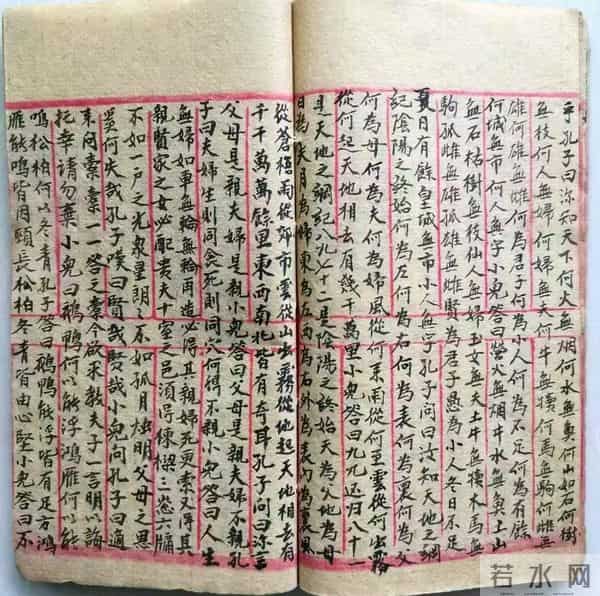 乎孔子曰沵知天下何火無烟何水無魚何山如石何樹
無枝何人無婦何婦無夫何牛無犢何馬無駒何雌無
雄何雄無雌何為君子何為小人何為不足何為有餘
何城無市何人無字小兒答曰螢火無烟井水無魚土山
無石枯樹無枝仙人無婦玉女無夫土牛無犢木馬無
駒孤雌無雄孤雄無雌賢為君子愚為小人冬日不足
夏日有餘皇城無市小人無字孔子問曰汝知天地之綱
記陰陽之終始何為左何為右何為表何為裏何為父
何為母何為夫何為婦風從何來雨從何至雲從何出霧
從何起天地相去有幾千萬里小兒答曰九九还归八十一
是天地之綱記八九七十二是陰陽之終始天為父地為母
日為夫月為婦東為左西為右外為表內為裏風
從蒼梧雨從郊市雲從山出霧從地起天地相去有
千千萬萬餘里東西南北皆有奇耳孔子問曰沵言
父母是親夫婦是親小兒答曰父母是親夫婦不親孔
子曰夫婦生則同衾死則同穴何得不親小兒答曰人生
無婦如車無輪無輪再造必得其親婦死更索又得其
親賢家之女必配貴夫十室之邑須得棟樑三窓六牖
不如一戶之光衆星朗朗不如孤月烛明父母之恩
奚何失哉孔子嘆曰賢哉賢哉小兒問孔子曰適
来問橐橐一一答之橐今欲来教夫子一言明以誨
托幸請勿棄小兒曰鵝鴨何以能浮鴻雁何以能
鳴松柏何以冬青孔子答曰鵝鴨能浮皆有足方鴻
雁能鳴皆因頸長松柏冬青皆由心堅小兒答曰不
若水网